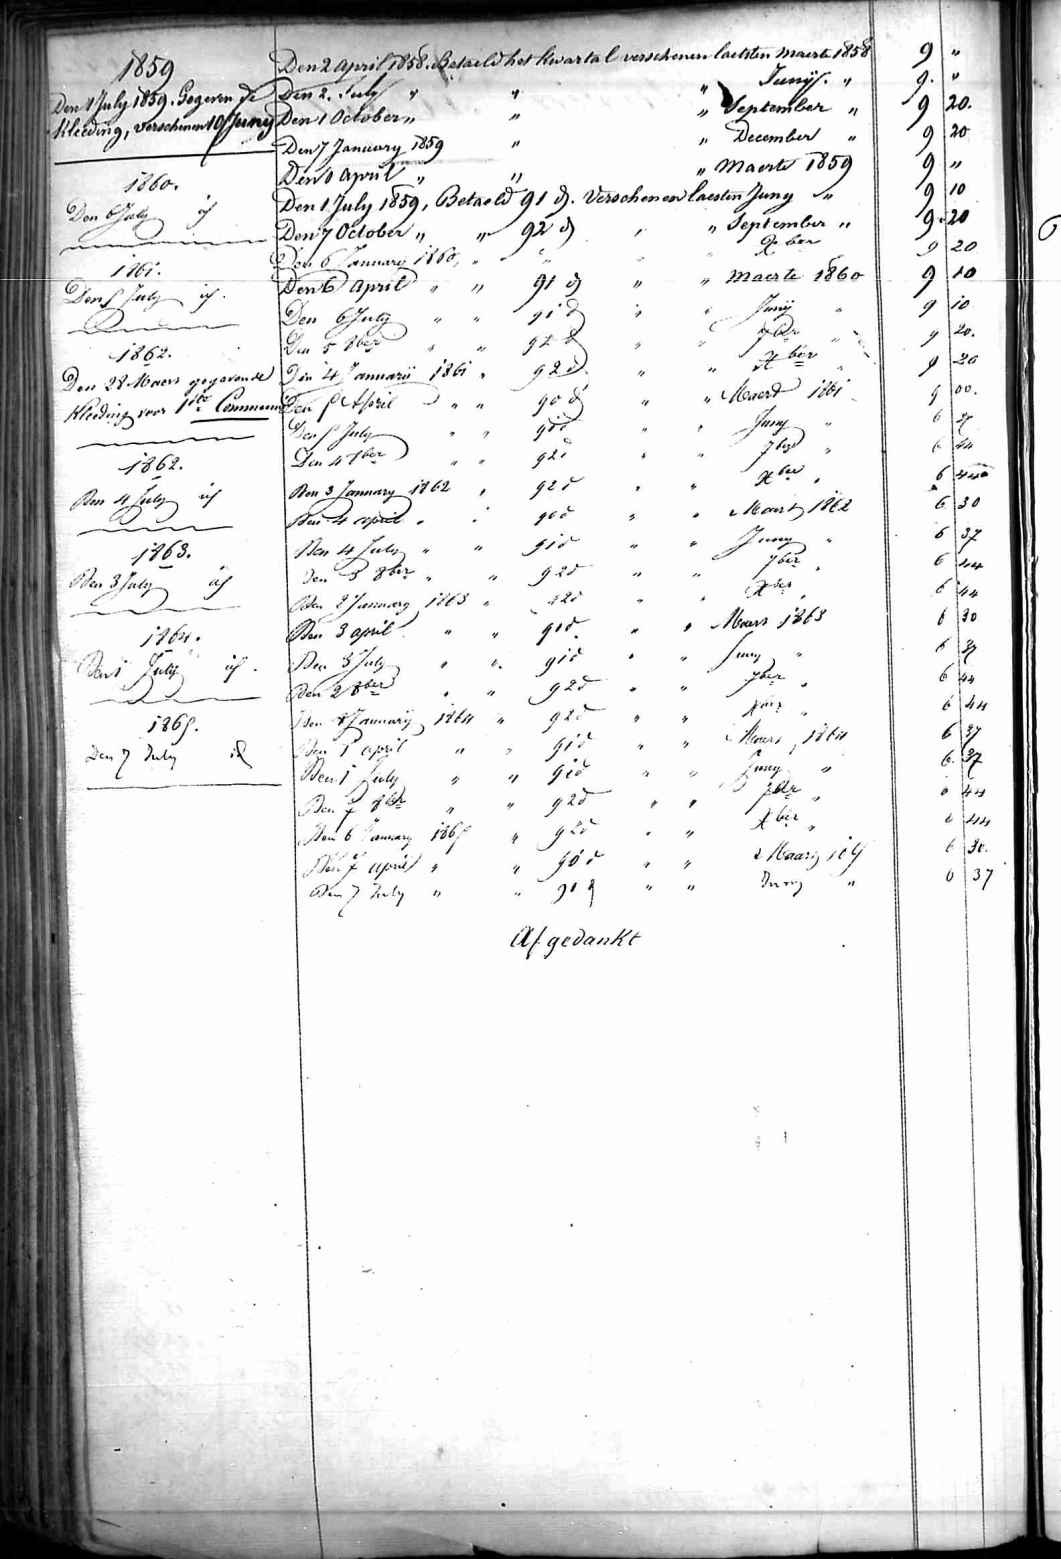 1859
Den 1 July 1859. Gegeven de
kleeding, verschenen 10 Juny
1860.
Den 6 July id
1861.
Den 5 July id.
1862.
Den 28 Maert gegevende
kleeding voor 1ste Commun
1862.
Den 4 July id
1863.
Den 3 July id
1864.
Den 1 July id.
1865.
Den 7 July id
Den 2 April 1858. Betaeld het kwartal verschenen laetsten maerte 1858 9 "
Den 2. July " " " Junij. " 9. "
Den 1 October " " " September " 9 20.
Den 7 January 1859 " " December " 9 20
Den 1 April " " " Maerte 1859 9 "
Den 1 July 1859, Betaeld 91 d. Verschenen laesten Juny " 9 10
Den 7 October " " 92 d " " September " 9 20
Den 6 January 1860, " " " " Xber 9 20
Den 6 April " " 91 d " " maerte 1860 9 10
Den 6 July " " 91 d " " Junij " 9 10
Den 5 8ber " " 92 d " " 7ber " 9 20.
Den 4 Januarij 1861 " 92 d. " " Xber " 9 20
Den 5 April " " 90 d " " Maert 1861 9 00.
Den 5 July " " 91 d " " Juny " 6 37
Den 4 8ber " " 92 d " " 7ber " 6 44
Den 3 January 1862 " 92 d " " Xber " 6 44
Den 4 april " " 90 d " " Maert 1862 6 30
Den 4 July " " 91 d " " Juny " 6 37
Den 3 8ber " " 92 d " " 7ber " 6 44
Den 2 January 1863 " 92 d " " Xber " 6 44
Den 3 april " " 90 d. " " Maert 1863 6 30
Den 3 July " " 91 d " " Juny " 6 37
Den 2 8ber " " 92 d " " 7ber " 6 44
Den 8 Januarij 1864 " 92 d " " Xber " 6 44
Den 1 april " " 91 d " " Maert 1864 6 37
Den 1 July " " 91 d " " Juny " 6. 37
Den 7 8ber " " 92 d " " 7ber " 6 44
Den 6 January 1865 " 92 d " " Xber " 6 44
Den 7 april " " 90 d " " Maart 1865 6 30.
Den 7 July " " 91 d " " Juny " 6 37
Afgedankt